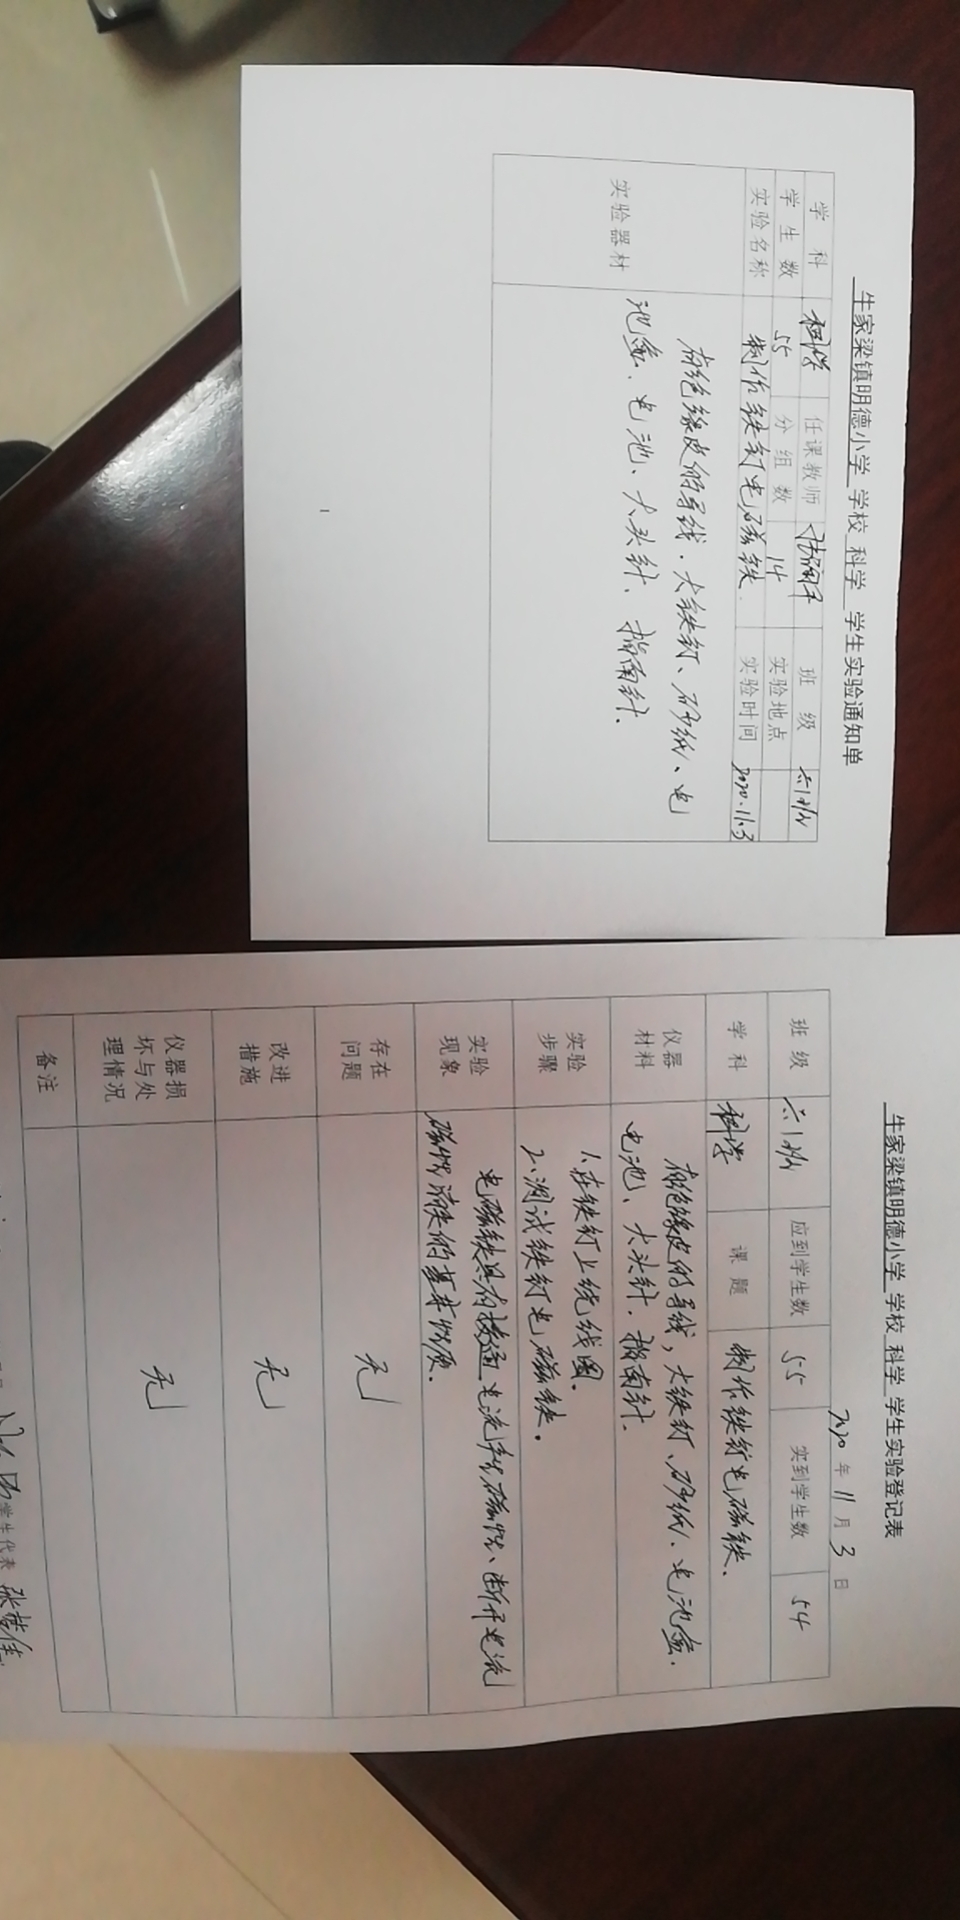 牛家梁镇明德小学 学校 科学 学生实验通知单
学 科 科学 任课教师 班 级 六1班
学生数 55 分组数 14 实验地点
实验名称 制作铁钉电磁铁. 实验时间 2020.11.3
实验器材
有绝缘皮的导线.大铁钉、砂纸、电
池盒、电池、大头针、指南针.
牛家梁镇明德小学 学校 科学 学生实验登记表
2020年11月3日
班 级 六1班 应到学生数 55 实到学生数 54
学 科 科学 课 题 制作铁钉电磁铁.
仪器材料
有绝缘皮的导线,大铁钉、砂纸.电池盒.
电池、大头针.指南针.
实验步骤
1.在铁钉上绕线圈.
2.测试铁钉电磁铁.
实验现象
电磁铁具有接通电流产生磁性、断开电流
磁性消失的基本性质.
存在问题 无
改进措施 无
仪器损坏与处理情况 无
备注
学生代表